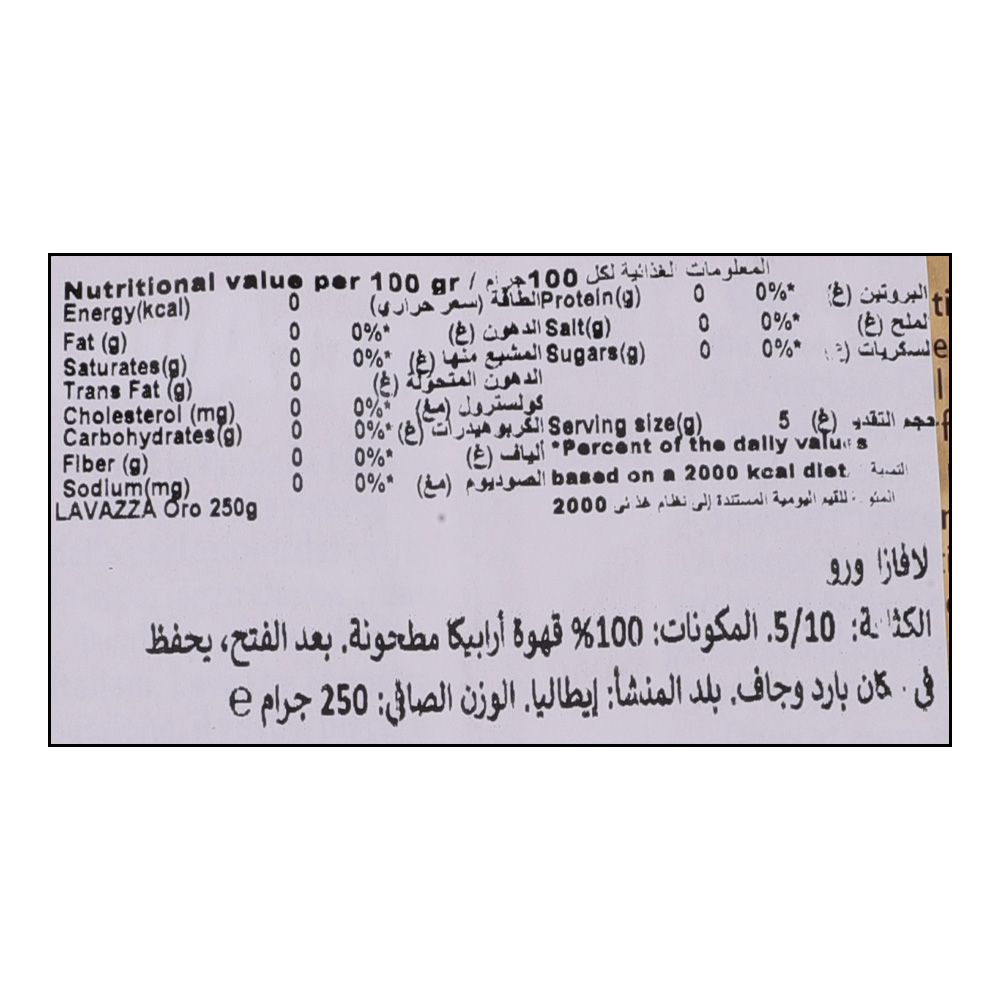 Nutritional value per 100 gr / المعلومات الغذائية لكل 100 جرام
Energy(kcal) 0 الطاقة (سعر حراري)
Fat (g) 0 0%* الدهون (غ)
Saturates(g) 0 0%* المشبع منها (غ)
Trans Fat (g) 0 الدهون المتحولة (غ)
Cholesterol (mg) 0 0%* كولسترول (مغ)
Carbohydrates(g) 0 0%* الكربوهيدرات (غ)
Fiber (g) 0 0%* الياف (غ)
Sodium(mg) 0 0%* الصوديوم (مغ)
LAVAZZA Oro 250g
Protein(g) 0 0%* البروتين (غ)
Salt(g) 0 0%* لملح (غ)
Sugars(g) 0 0%* لسكريات
Serving size(g) 5 حجم التقديم (غ)
*Percent of the daily values
based on a 2000 kcal diet النسبة
للقيم اليومية المستندة إلى نظام غذائي 2000
لافازا ورو
الكثافة: 5/10. المكونات: 100% قهوة أرابيكا مطحونة. بعد الفتح، يحفظ
في كان بارد وجاف. بلد المنشأ: إيطاليا. الوزن الصافي: 250 جرام e